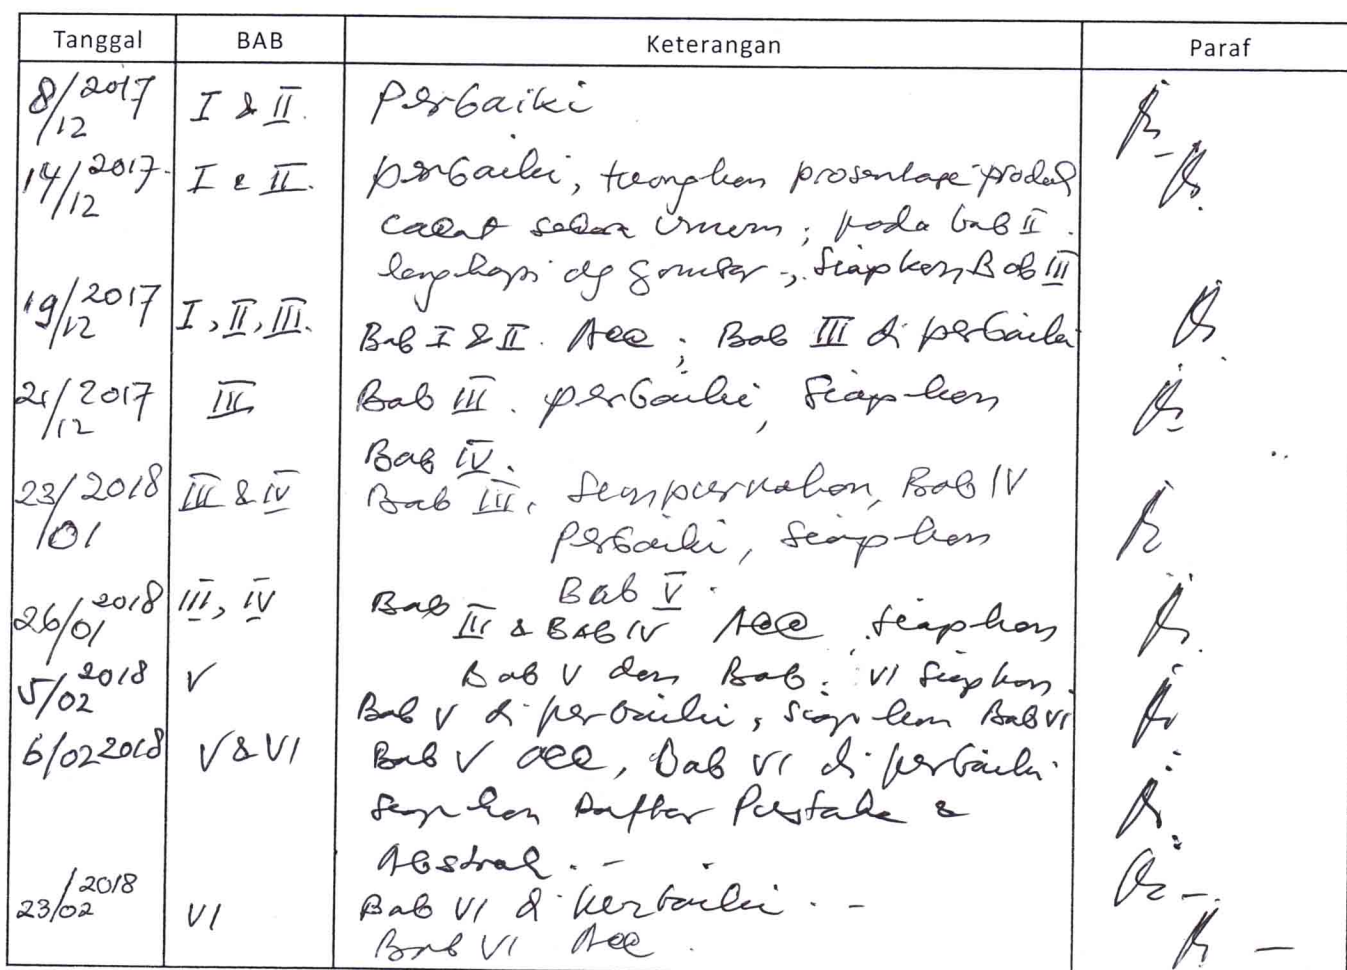 Tanggal BAB Keterangan Paraf
8/12 2017 I & II. Perbaiki
14/12 2017- I & II. perbaiki, tuangkan prosentase produk
cacat secara umum; pada bab II.
lengkapi dg gambar -, Siapkan Bab III
19/12 2017 I, II, III. Bab I & II. Acc; Bab III di perbaiki
21/12 2017 III Bab III. perbaiki, Siapkan
Bab IV.
23/01 2018 III & IV Bab III, Sempurnakan, Bab IV
Perbaiki, Siapkan
Bab V.
26/01 2018 III, IV Bab III & BAB IV Acc, Siapkan
Bab V dan Bab. VI Siapkan.
5/02 2018 V Bab V di perbaiki, Siapkan Bab VI
6/02 2018 V & VI Bab V acc, Bab VI di perbaiki.
Siapkan Daftar Pustaka &
Abstrak. -
23/02 2018 VI Bab VI di perbaiki. -
Bab VI Acc.